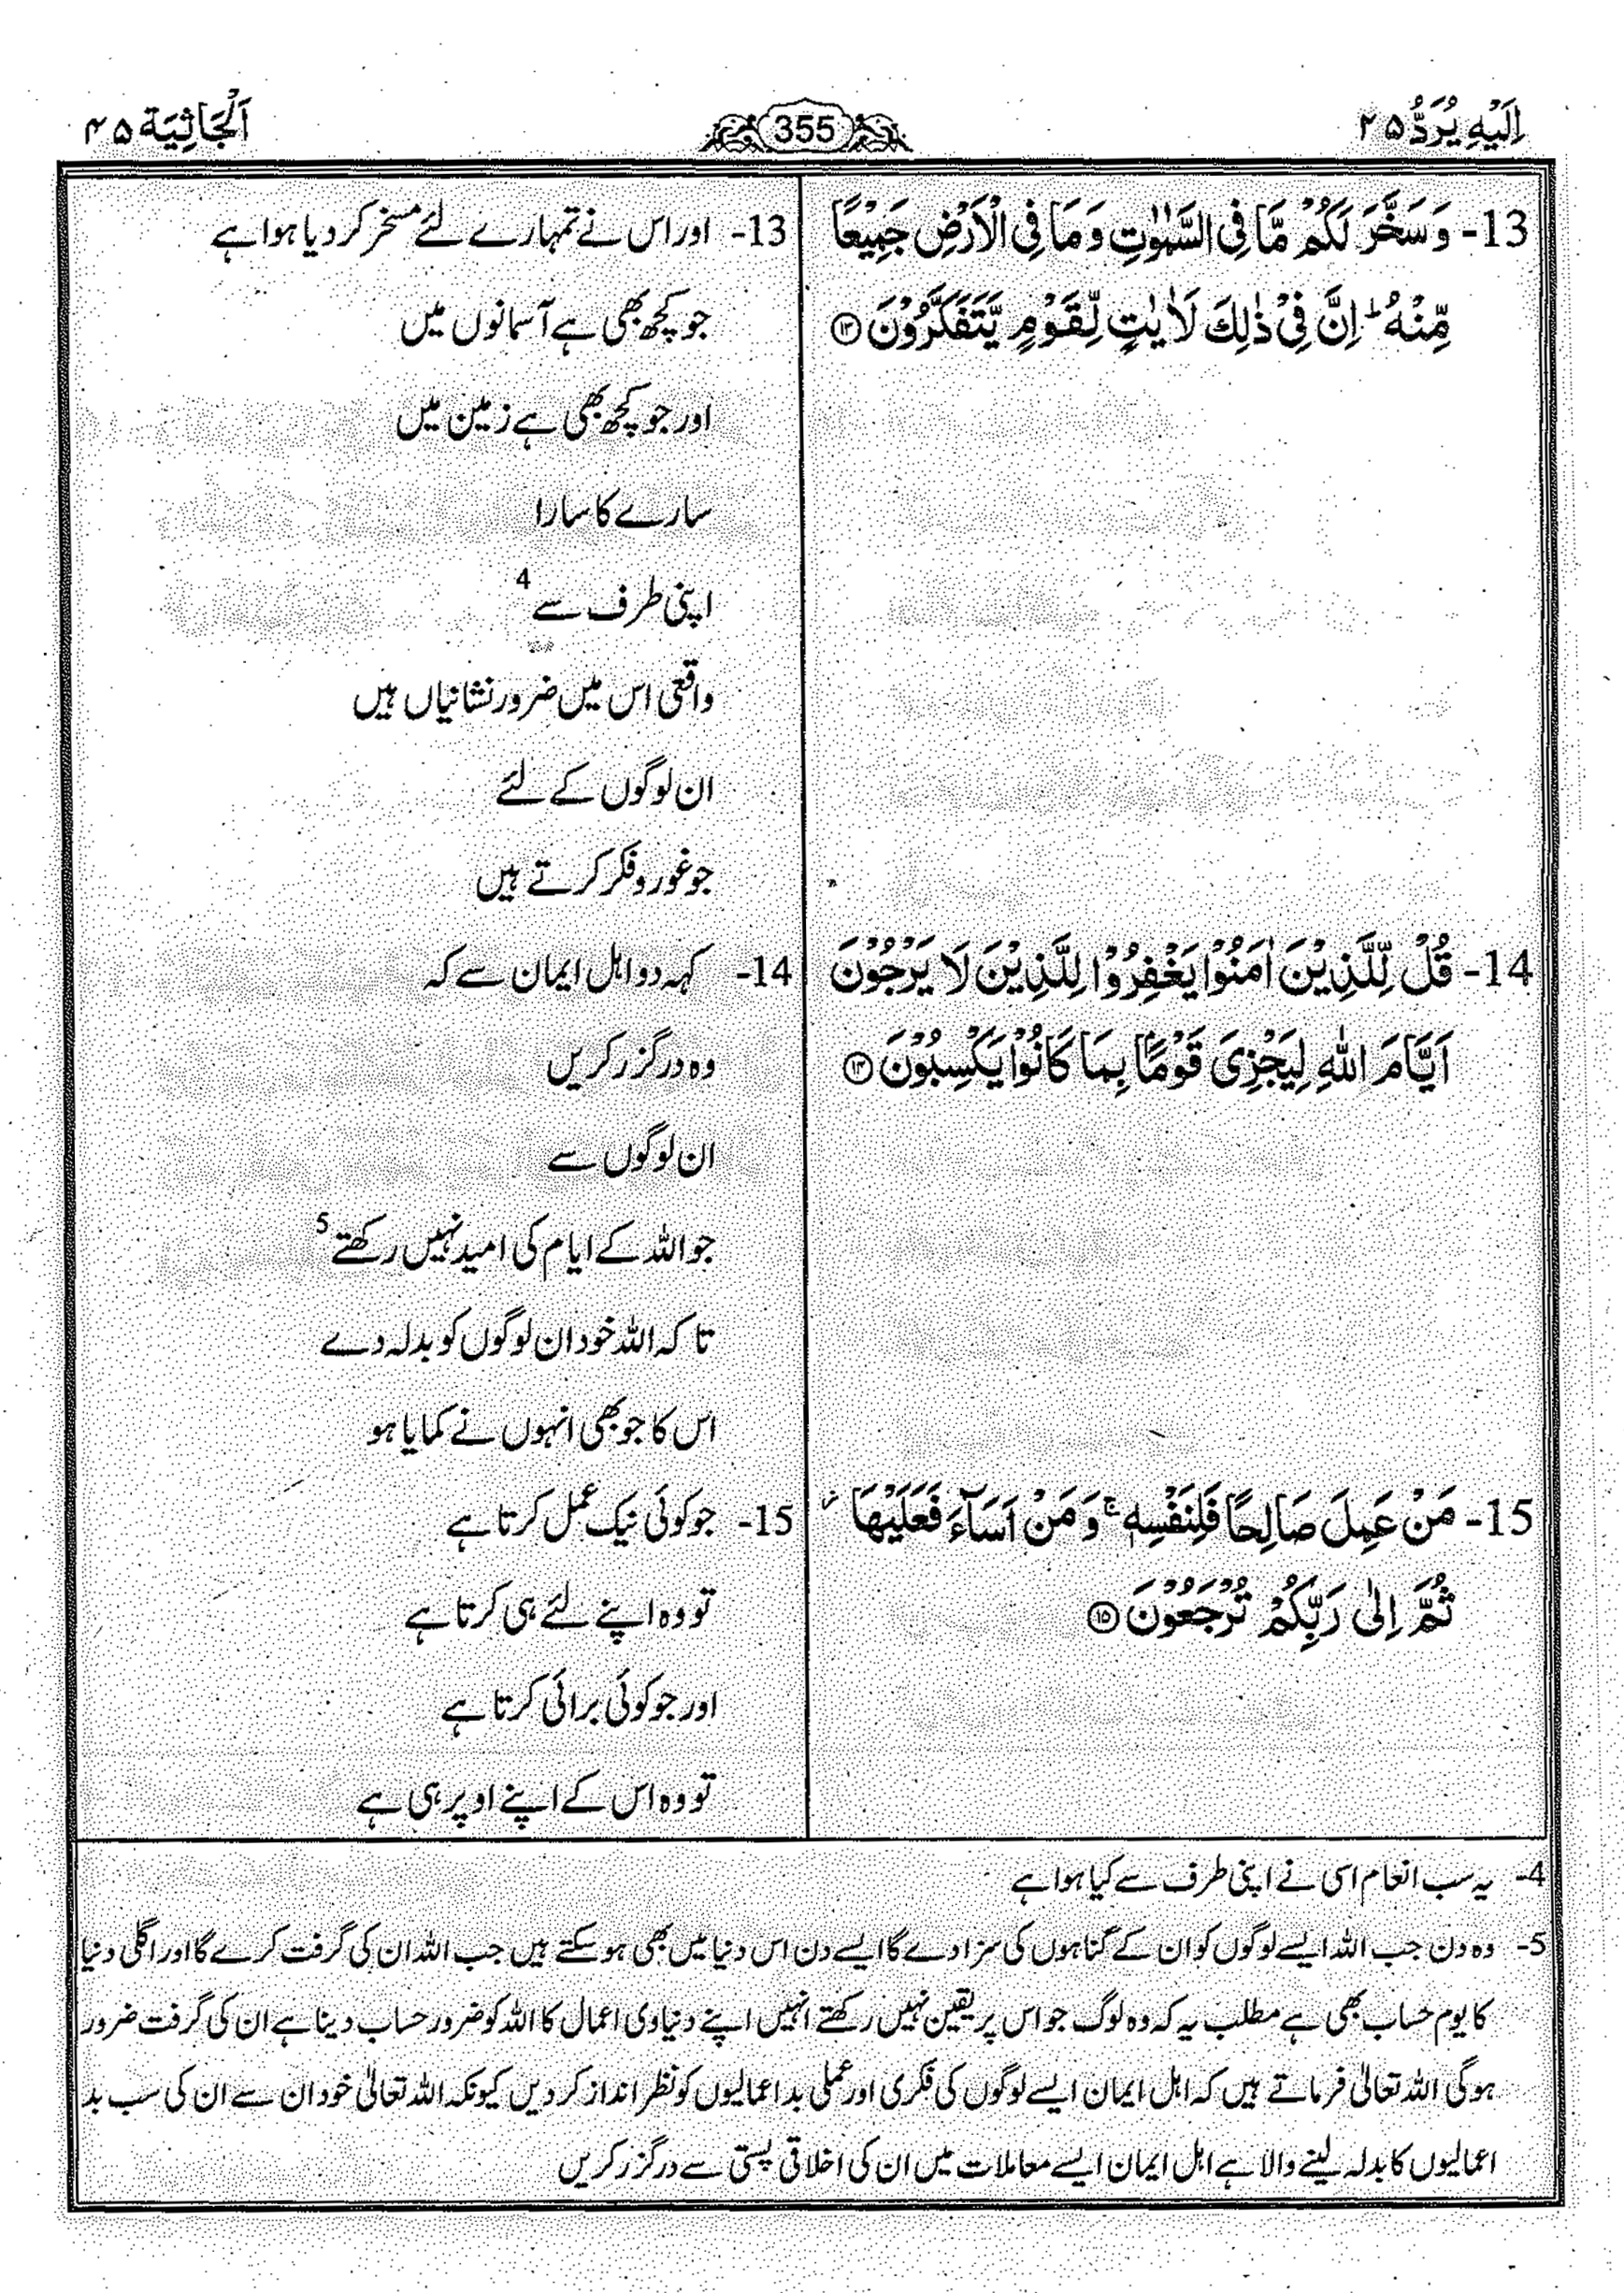 اِلَيْهِ يُرَدُّ ۲۵
355
اَلْجَاثِيَة ۴۵
13- وَسَخَّرَ لَكُمْ مَّا فِي السَّمٰوٰتِ وَمَا فِي الْاَرْضِ جَمِيْعًا
مِّنْهُ ؕ اِنَّ فِيْ ذٰلِكَ لَاٰيٰتٍ لِّقَوْمٍ يَّتَفَكَّرُوْنَ ⓭
14- قُلْ لِّلَّذِيْنَ اٰمَنُوْا يَغْفِرُوْا لِلَّذِيْنَ لَا يَرْجُوْنَ
اَيَّامَ اللّٰهِ لِيَجْزِيَ قَوْمًۢا بِمَا كَانُوْا يَكْسِبُوْنَ ⓮
15- مَنْ عَمِلَ صَالِحًا فَلِنَفْسِهٖ ۚ وَمَنْ اَسَآءَ فَعَلَيْهَا ؗ
ثُمَّ اِلٰى رَبِّكُمْ تُرْجَعُوْنَ ⓯
13- اور اس نے تمہارے لئے مسخر کر دیا ہوا ہے
جو کچھ بھی ہے آسمانوں میں
اور جو کچھ بھی ہے زمین میں
سارے کا سارا
اپنی طرف سے 4
واقعی اس میں ضرور نشانیاں ہیں
ان لوگوں کے لئے
جو غور و فکر کرتے ہیں
14- کہہ دو اہل ایمان سے کہ
وہ درگزر کریں
ان لوگوں سے
جو اللہ کے ایام کی امید نہیں رکھتے 5
تا کہ اللہ خود ان لوگوں کو بدلہ دے
اس کا جو بھی انہوں نے کمایا ہو
15- جو کوئی نیک عمل کرتا ہے
تو وہ اپنے لئے ہی کرتا ہے
اور جو کوئی برائی کرتا ہے
تو وہ اس کے اپنے اوپر ہی ہے
4- یہ سب انعام اسی نے اپنی طرف سے کیا ہوا ہے
5- وہ دن جب اللہ ایسے لوگوں کو ان کے گناہوں کی سزا دے گا ایسے دن اس دنیا میں بھی ہو سکتے ہیں جب اللہ ان کی گرفت کرے گا اور اگلی دنیا
کا یوم حساب بھی ہے مطلب یہ کہ وہ لوگ جو اس پر یقین نہیں رکھتے انہیں اپنے دنیاوی اعمال کا اللہ کو ضرور حساب دینا ہے ان کی گرفت ضرور
ہوگی اللہ تعالیٰ فرماتے ہیں کہ اہل ایمان ایسے لوگوں کی فکری اور عملی بد اعمالیوں کو نظر انداز کر دیں کیونکہ اللہ تعالیٰ خود ان سے ان کی سب بد
اعمالیوں کا بدلہ لینے والا ہے اہل ایمان ایسے معاملات میں ان کی اخلاقی پستی سے درگزر کریں